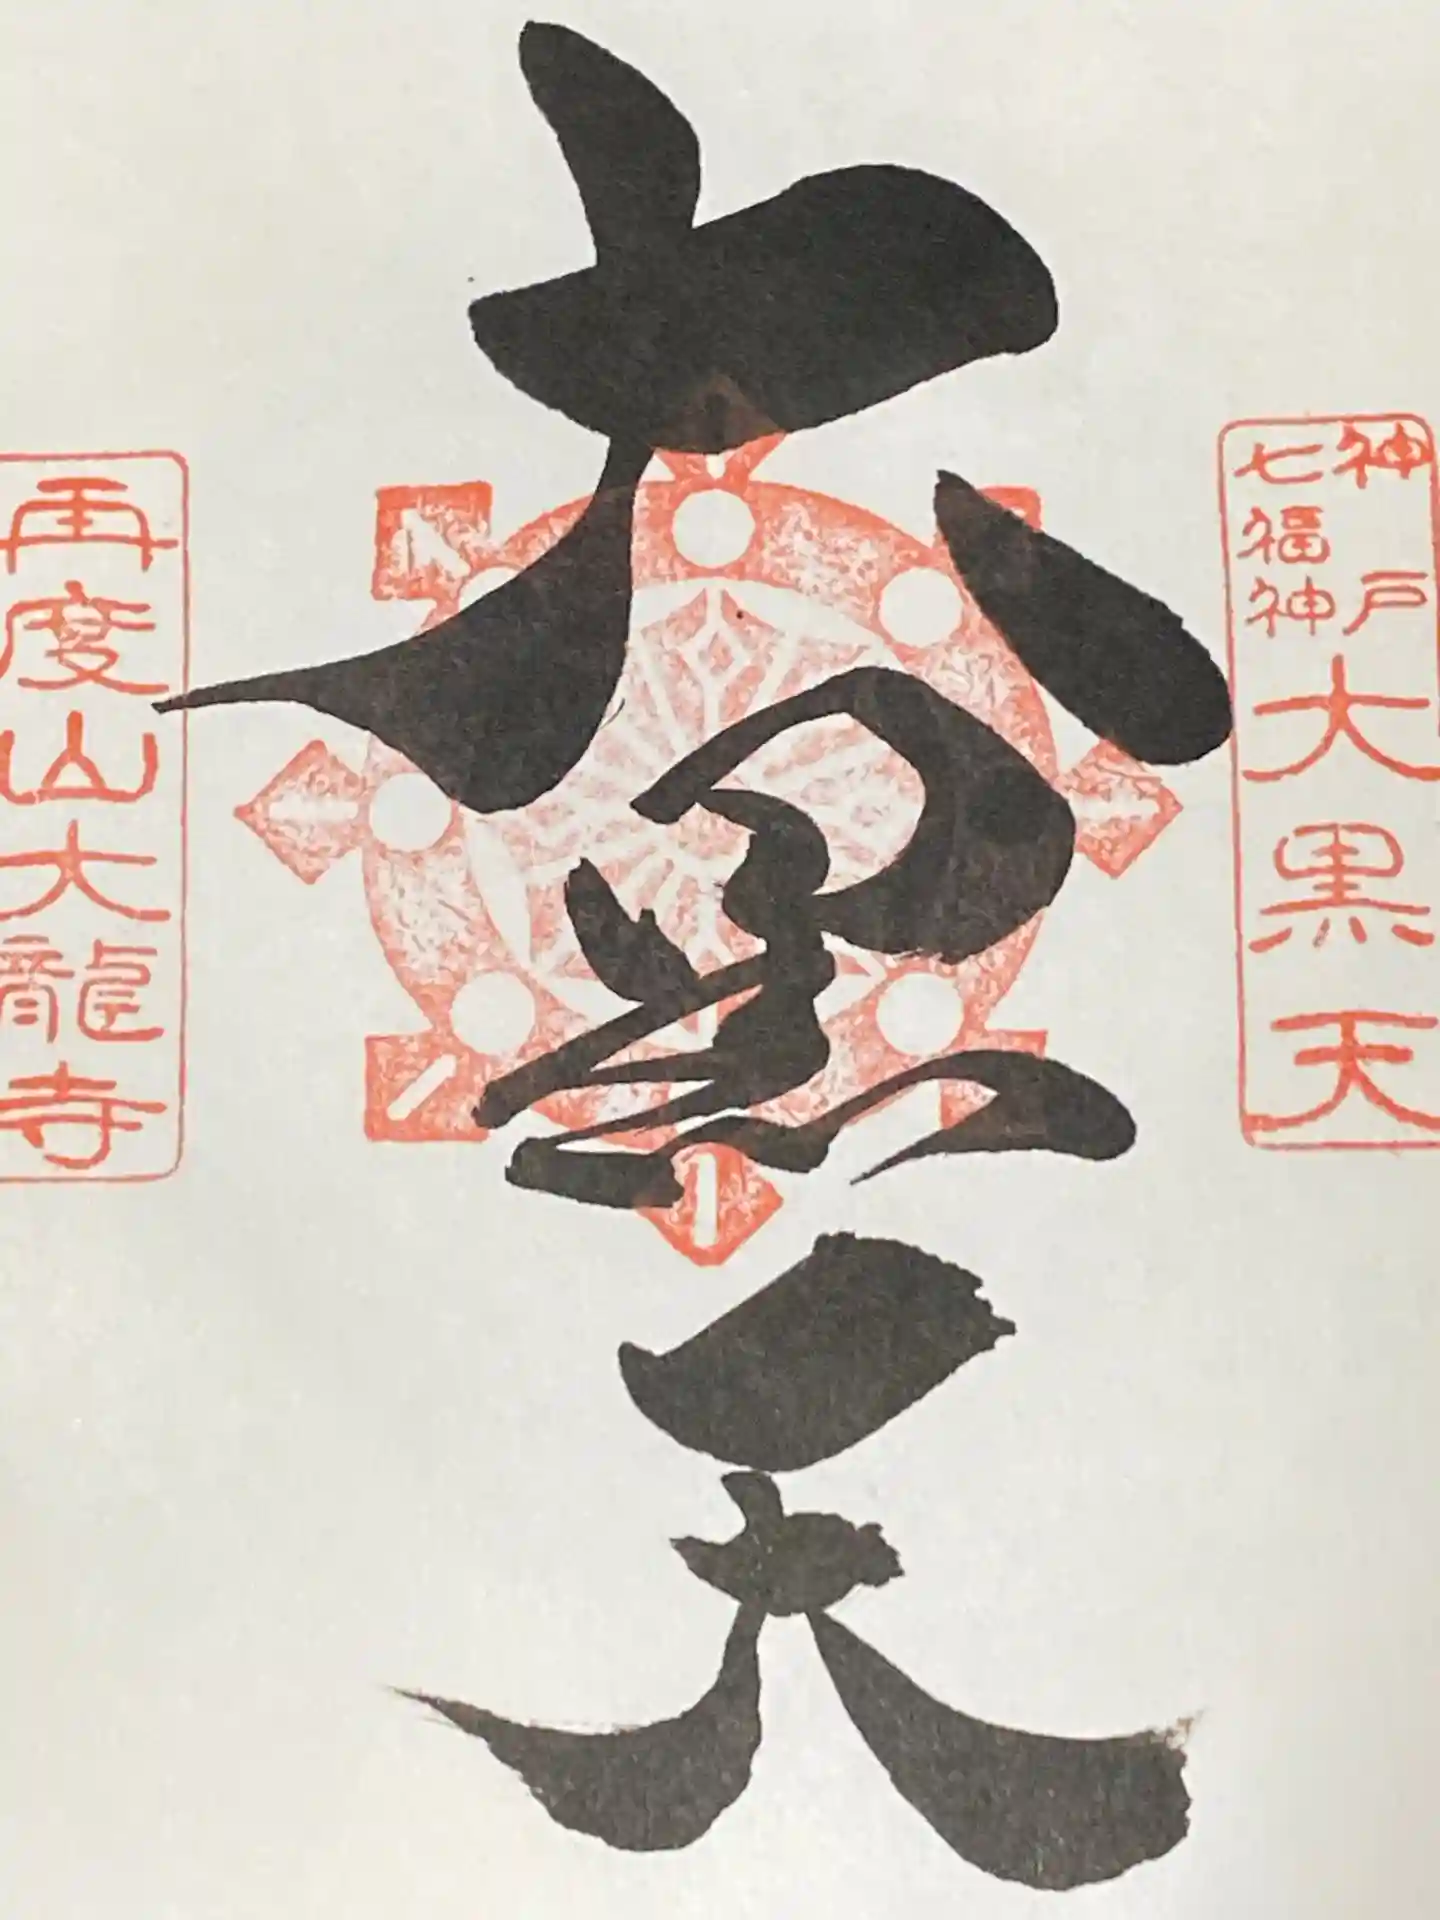 神戸
七福神
大黒天
大黒天
再度山大龍寺